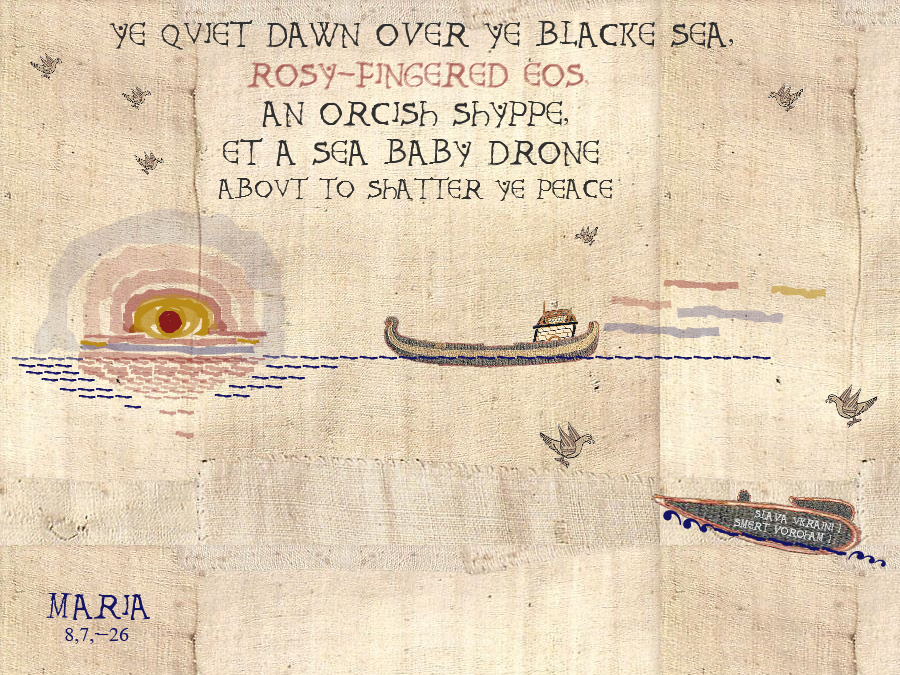 YE QVIET DAWN OVER YE BLACKE SEA,
ROSY-FINGERED EOS.
AN ORCISH SHYPPE,
ET A SEA BABY DRONE
ABOVT TO SHATTER YE PEACE
SLAVA VKRAINI!
SMERT VOROHAM!
MARIA
8,7,–26